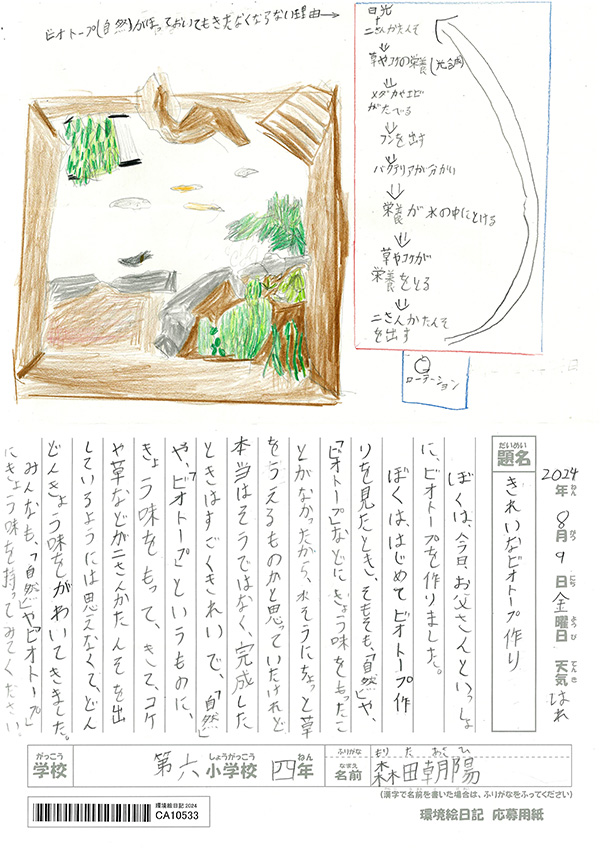 ビオトープ(自然)がほっておいてもきたなくならない理由→
日光
二さんかたんそ
草やコケの栄養(光合成)
メダカやエビがたべる
フンを出す
バクテリアが分かい
栄養が水の中にとける
草やコケが栄養をとる
二さんかたんそを出す
ローテーション
2024年8月9日金曜日 天気はれ
だいめい
題名
きれいなビオトープ作り
ぼくは、今日、お父さんといっしょ
に、ビオトープを作りました。
ぼくは、はじめてビオトープ作
りを見たとき、そもそも、「自然」や、
「ビオトープ」などにきょう味をもったこ
とがなかったから、水そうにちょっと草
をうえるものかと思っていたけれど
本当はそうではなく、完成した
ときはすごくきれいで、「自然」
や、「ビオトープ」というものに、
きょう味をもって、きて、コケ
や草などが二さんかたんそを出
しているようには思えなくて、どん
どんきょう味がわいてきました。
みんなも、「自然」や「ビオトープ」
にきょう味を持ってみてください。
がっこう
学校
第六小学校 四年
しょうがっこう
ねん
ふりがな
もりた あさひ
なまえ
名前
森田朝陽
(漢字で名前を書いた場合は、ふりがなをふってください)
環境絵日記 応募用紙
環境絵日記2024
CA10533